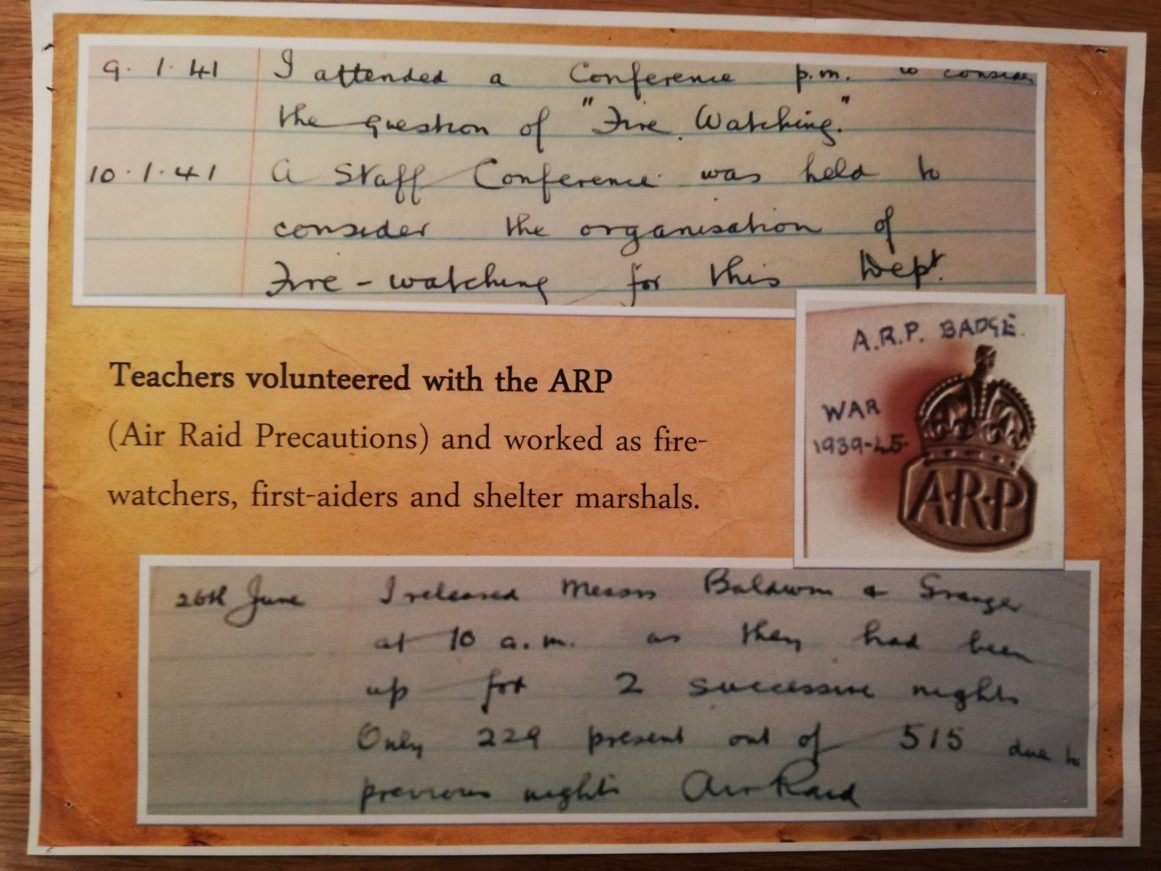 9.1.41 I attended a Conference p.m. to consider
the question of "Fire Watching."
10.1.41 A Staff Conference was held to
consider the organisation of
Fire-watching for this Dept.
A.R.P. BADGE.
WAR
1939-45.
A·R·P
Teachers volunteered with the ARP
(Air Raid Precautions) and worked as fire-
watchers, first-aiders and shelter marshals.
26th June I released Messrs Baldwin & Granger
at 10 a.m. as they had been
up for 2 successive nights
Only 229 present out of 515 due to
previous nights Air Raid